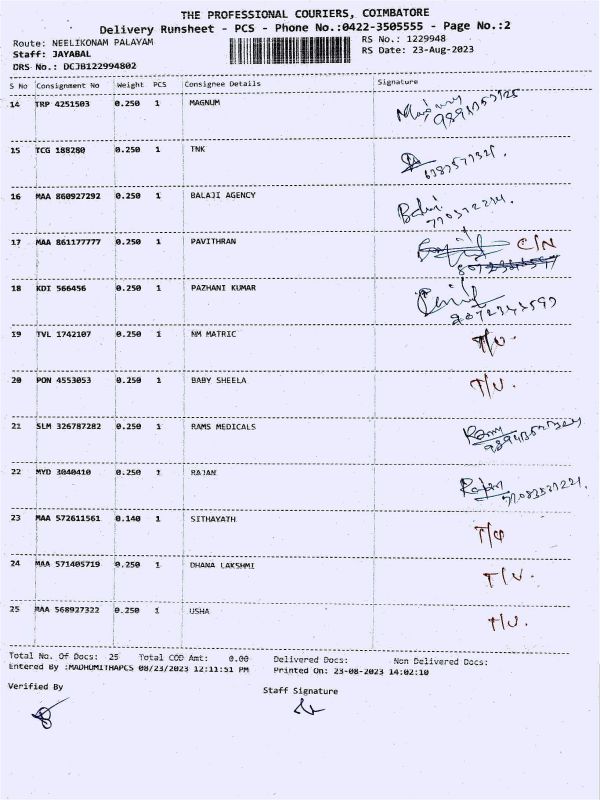 THE PROFESSIONAL COURIERS, COIMBATORE
Delivery Runsheet - PCS - Phone No.:0422-3505555 - Page No.:2
Route: NEELIKONAM PALAYAM RS No.: 1229948
Staff: JAYABAL RS Date: 23-Aug-2023
DRS No.: DCJB122994802
S No Consignment No Weight PCS Consignee Details Signature
14 TRP 4251503 0.250 1 MAGNUM
15 TCG 188280 0.250 1 TNK
16 MAA 860927292 0.250 1 BALAJI AGENCY
17 MAA 861177777 0.250 1 PAVITHRAN C/N
18 KDI 566456 0.250 1 PAZHANI KUMAR
19 TVL 1742107 0.250 1 NM MATRIC T/U.
20 PON 4553053 0.250 1 BABY SHEELA T/U.
21 SLM 326787282 0.250 1 RAMS MEDICALS
22 MYD 3040410 0.250 1 RAJAN Rajan
23 MAA 572611561 0.140 1 SITHAYATH
24 MAA 571405719 0.250 1 DHANA LAKSHMI T/U.
25 MAA 568927322 0.250 1 USHA T/U.
Total No. Of Docs: 25 Total COD Amt: 0.00 Delivered Docs: Non Delivered Docs:
Entered By :MADHUMITHAPCS 08/23/2023 12:11:51 PM Printed On: 23-08-2023 14:02:10
Verified By Staff Signature